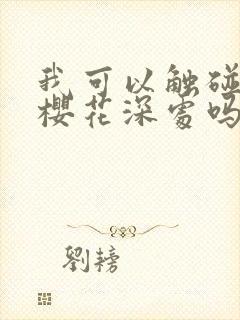 我可以触碰
樱花深处吗
劉榜